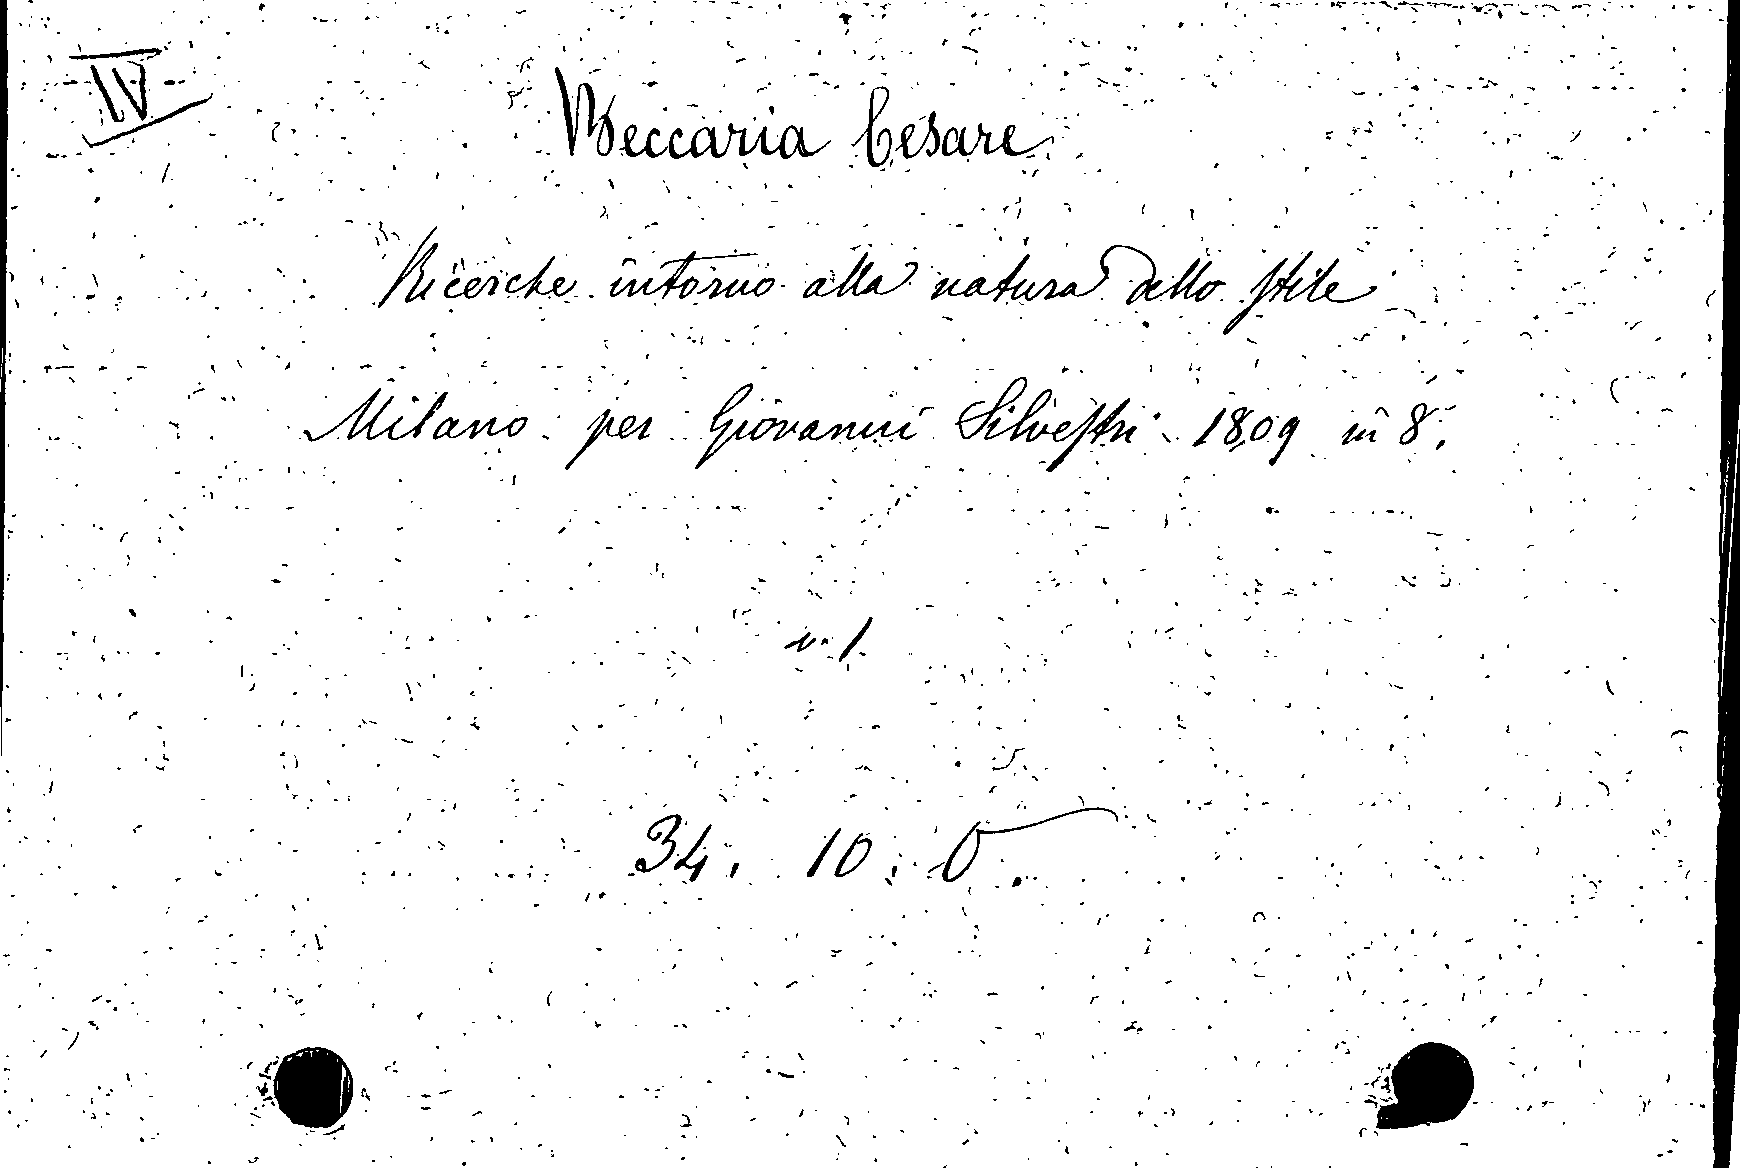 IV
Beccaria Cesare
Ricerche intorno alla natura dello stile
Milano per Giovanni Silvestri 1809 in 8.
v. 1.
34. 10. O.